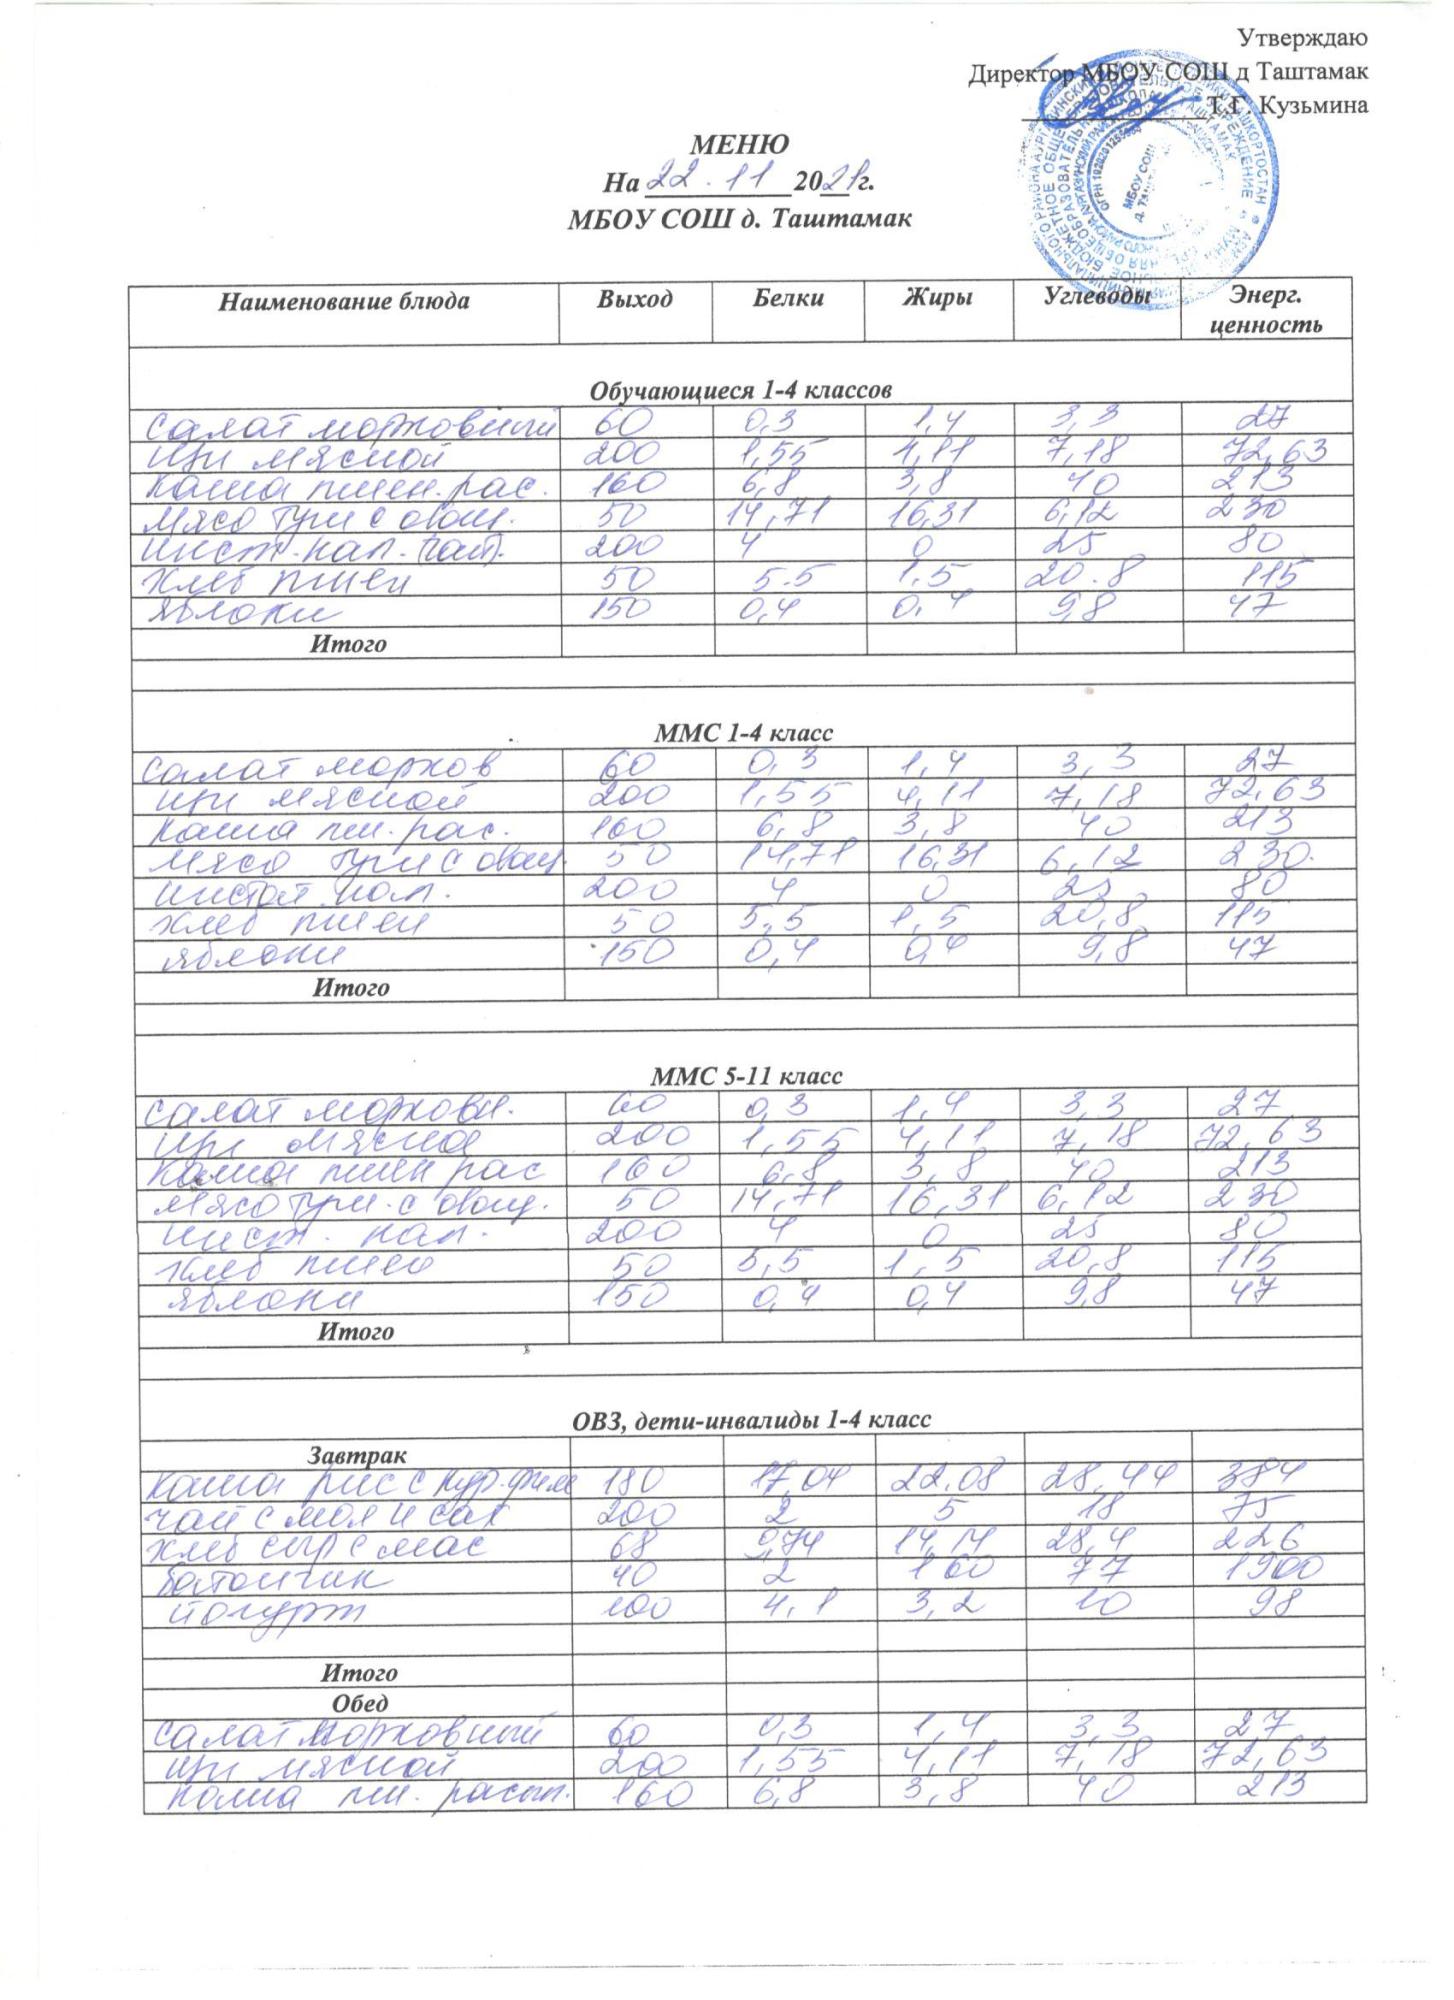 Утверждаю
Директор МБОУ СОШ д Таштамак
Т.Г. Кузьмина
МЕНЮ
На 22.11 2021г.
МБОУ СОШ д. Таштамак
Наименование блюда Выход Белки Жиры Углеводы Энерг. ценность
Обучающиеся 1-4 классов
салат морковный 60 0,3 1,4 3,3 27
щи мясной 200 1,55 4,11 7,18 72,63
каша пшен. рас. 160 6,8 3,8 40 213
мясо туш с овощ. 50 14,71 16,31 6,12 230
200 4 0 25 80
хлеб пшен 50 5.5 1.5 20.8 115
яблоки 150 0,4 0,4 9,8 47
Итого
ММС 1-4 класс
салат морков 60 0,3 1,4 3,3 27
щи мясной 200 1,55 4,11 7,18 72,63
каша пш. рас. 160 6,8 3,8 40 213
мясо туш с овощ. 50 14,71 16,31 6,12 230.
200 4 0 25 80
хлеб пшен 50 5,5 1,5 20,8 115
яблоки 150 0,4 0,4 9,8 47
Итого
ММС 5-11 класс
салат морковн. 60 0,3 1,4 3,3 27
щи мясной 200 1,55 4,11 7,18 72,63
каша пшен рас 160 6,8 3,8 40 213
мясо туш. с овощ. 50 14,71 16,31 6,12 230
200 4 0 25 80
хлеб пшен 50 5,5 1,5 20,8 115
яблоки 150 0,4 0,4 9,8 47
Итого
ОВЗ, дети-инвалиды 1-4 класс
Завтрак
каша рис с кур. филе 180 17,04 22,08 28,44 384
чай с мол и сах 200 2 5 18 75
хлеб сыр с мас 68 9,74 14,14 28,4 226
батончик 40 2 160 77 1900
йогурт 100 4,1 3,2 10 98
Итого
Обед
салат морковный 60 0,3 1,4 3,3 27
щи мясной 200 1,55 4,11 7,18 72,63
каша пш. расып. 160 6,8 3,8 40 213